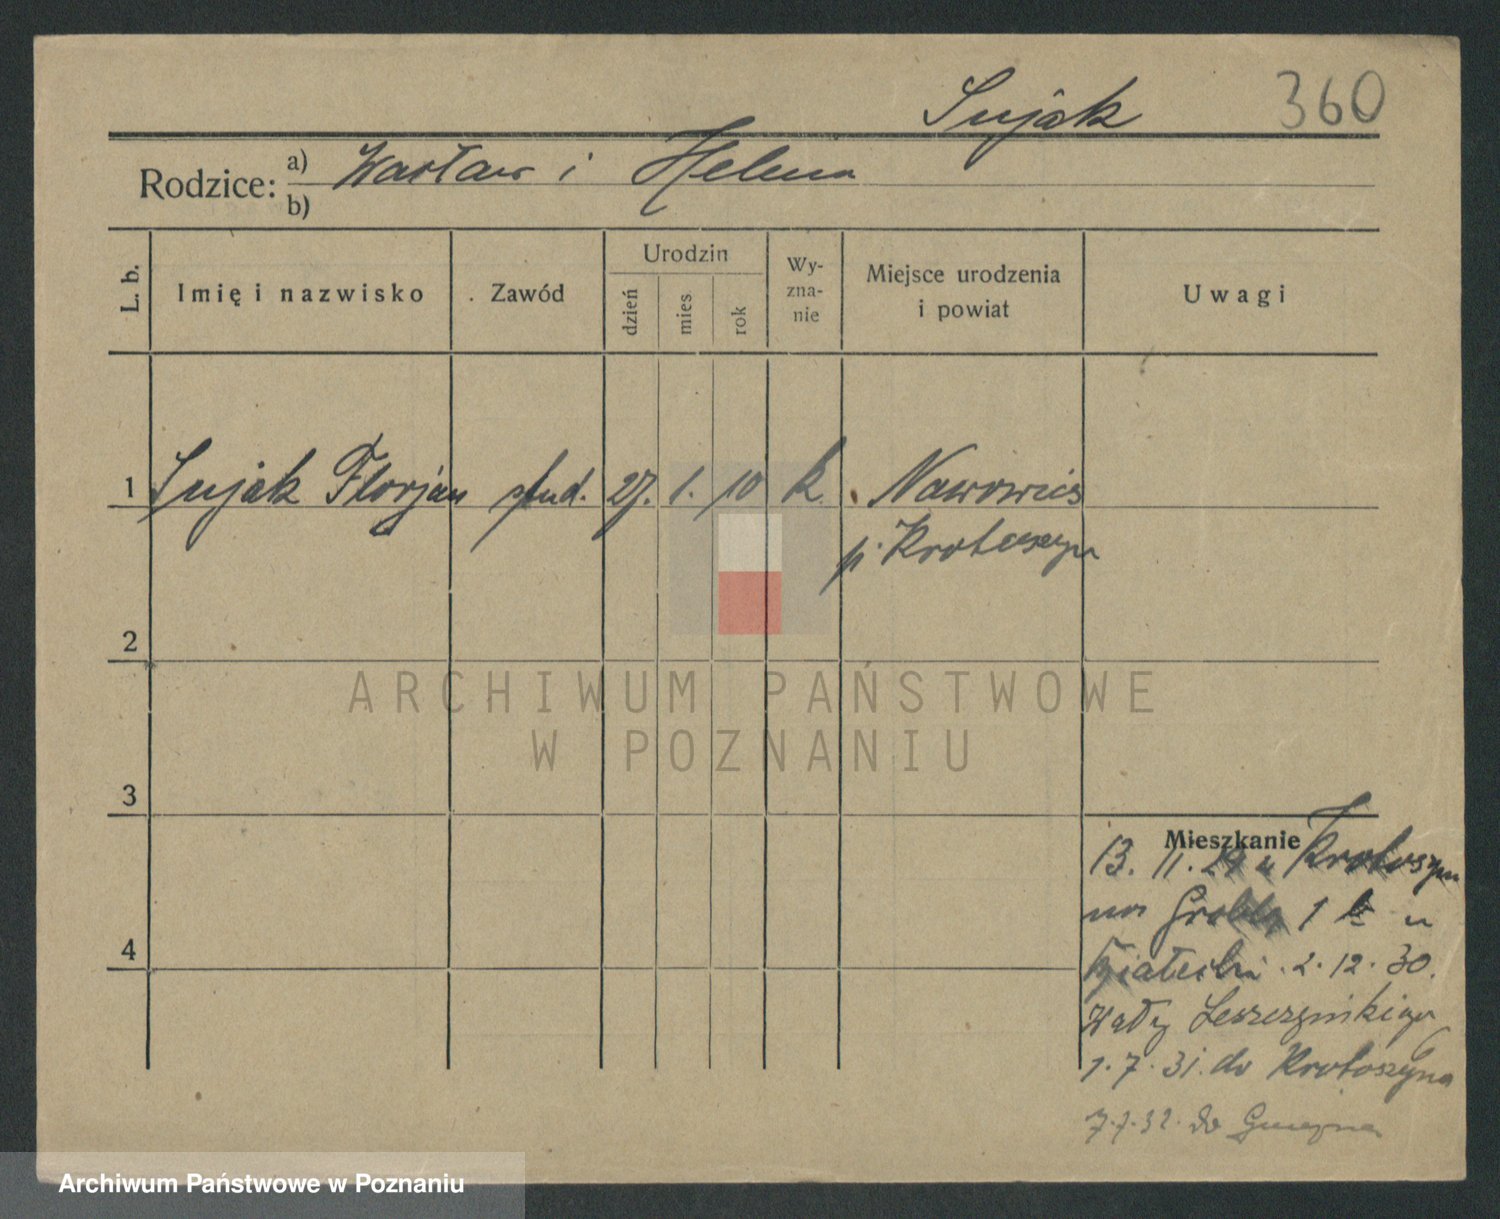 Sujak 360
Rodzice: a) Wacław i Helena
b)
L. b. Imię i nazwisko Zawód Urodzin dzień mies rok Wy-zna-nie Miejsce urodzenia i powiat Uwagi
1 Sujak Florjan stud. 27. 1. 10 k. Nawowies
p. Krotoszyn
2
ARCHIWUM PAŃSTWOWE
W POZNANIU
3
Mieszkanie
13. 11. 29 z Krotoszyn
na Grobla 1 u
2. 12. 30.
Wały Leszczyńskiego
1. 7. 31. do Krotoszyna
7. 7. 32. do Gniezna
4
Archiwum Państwowe w Poznaniu